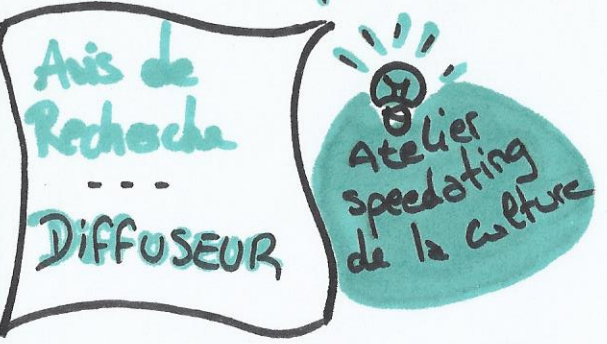 Avis de
Recherche
---
DIFFUSEUR
Atelier
speedating
de la culture